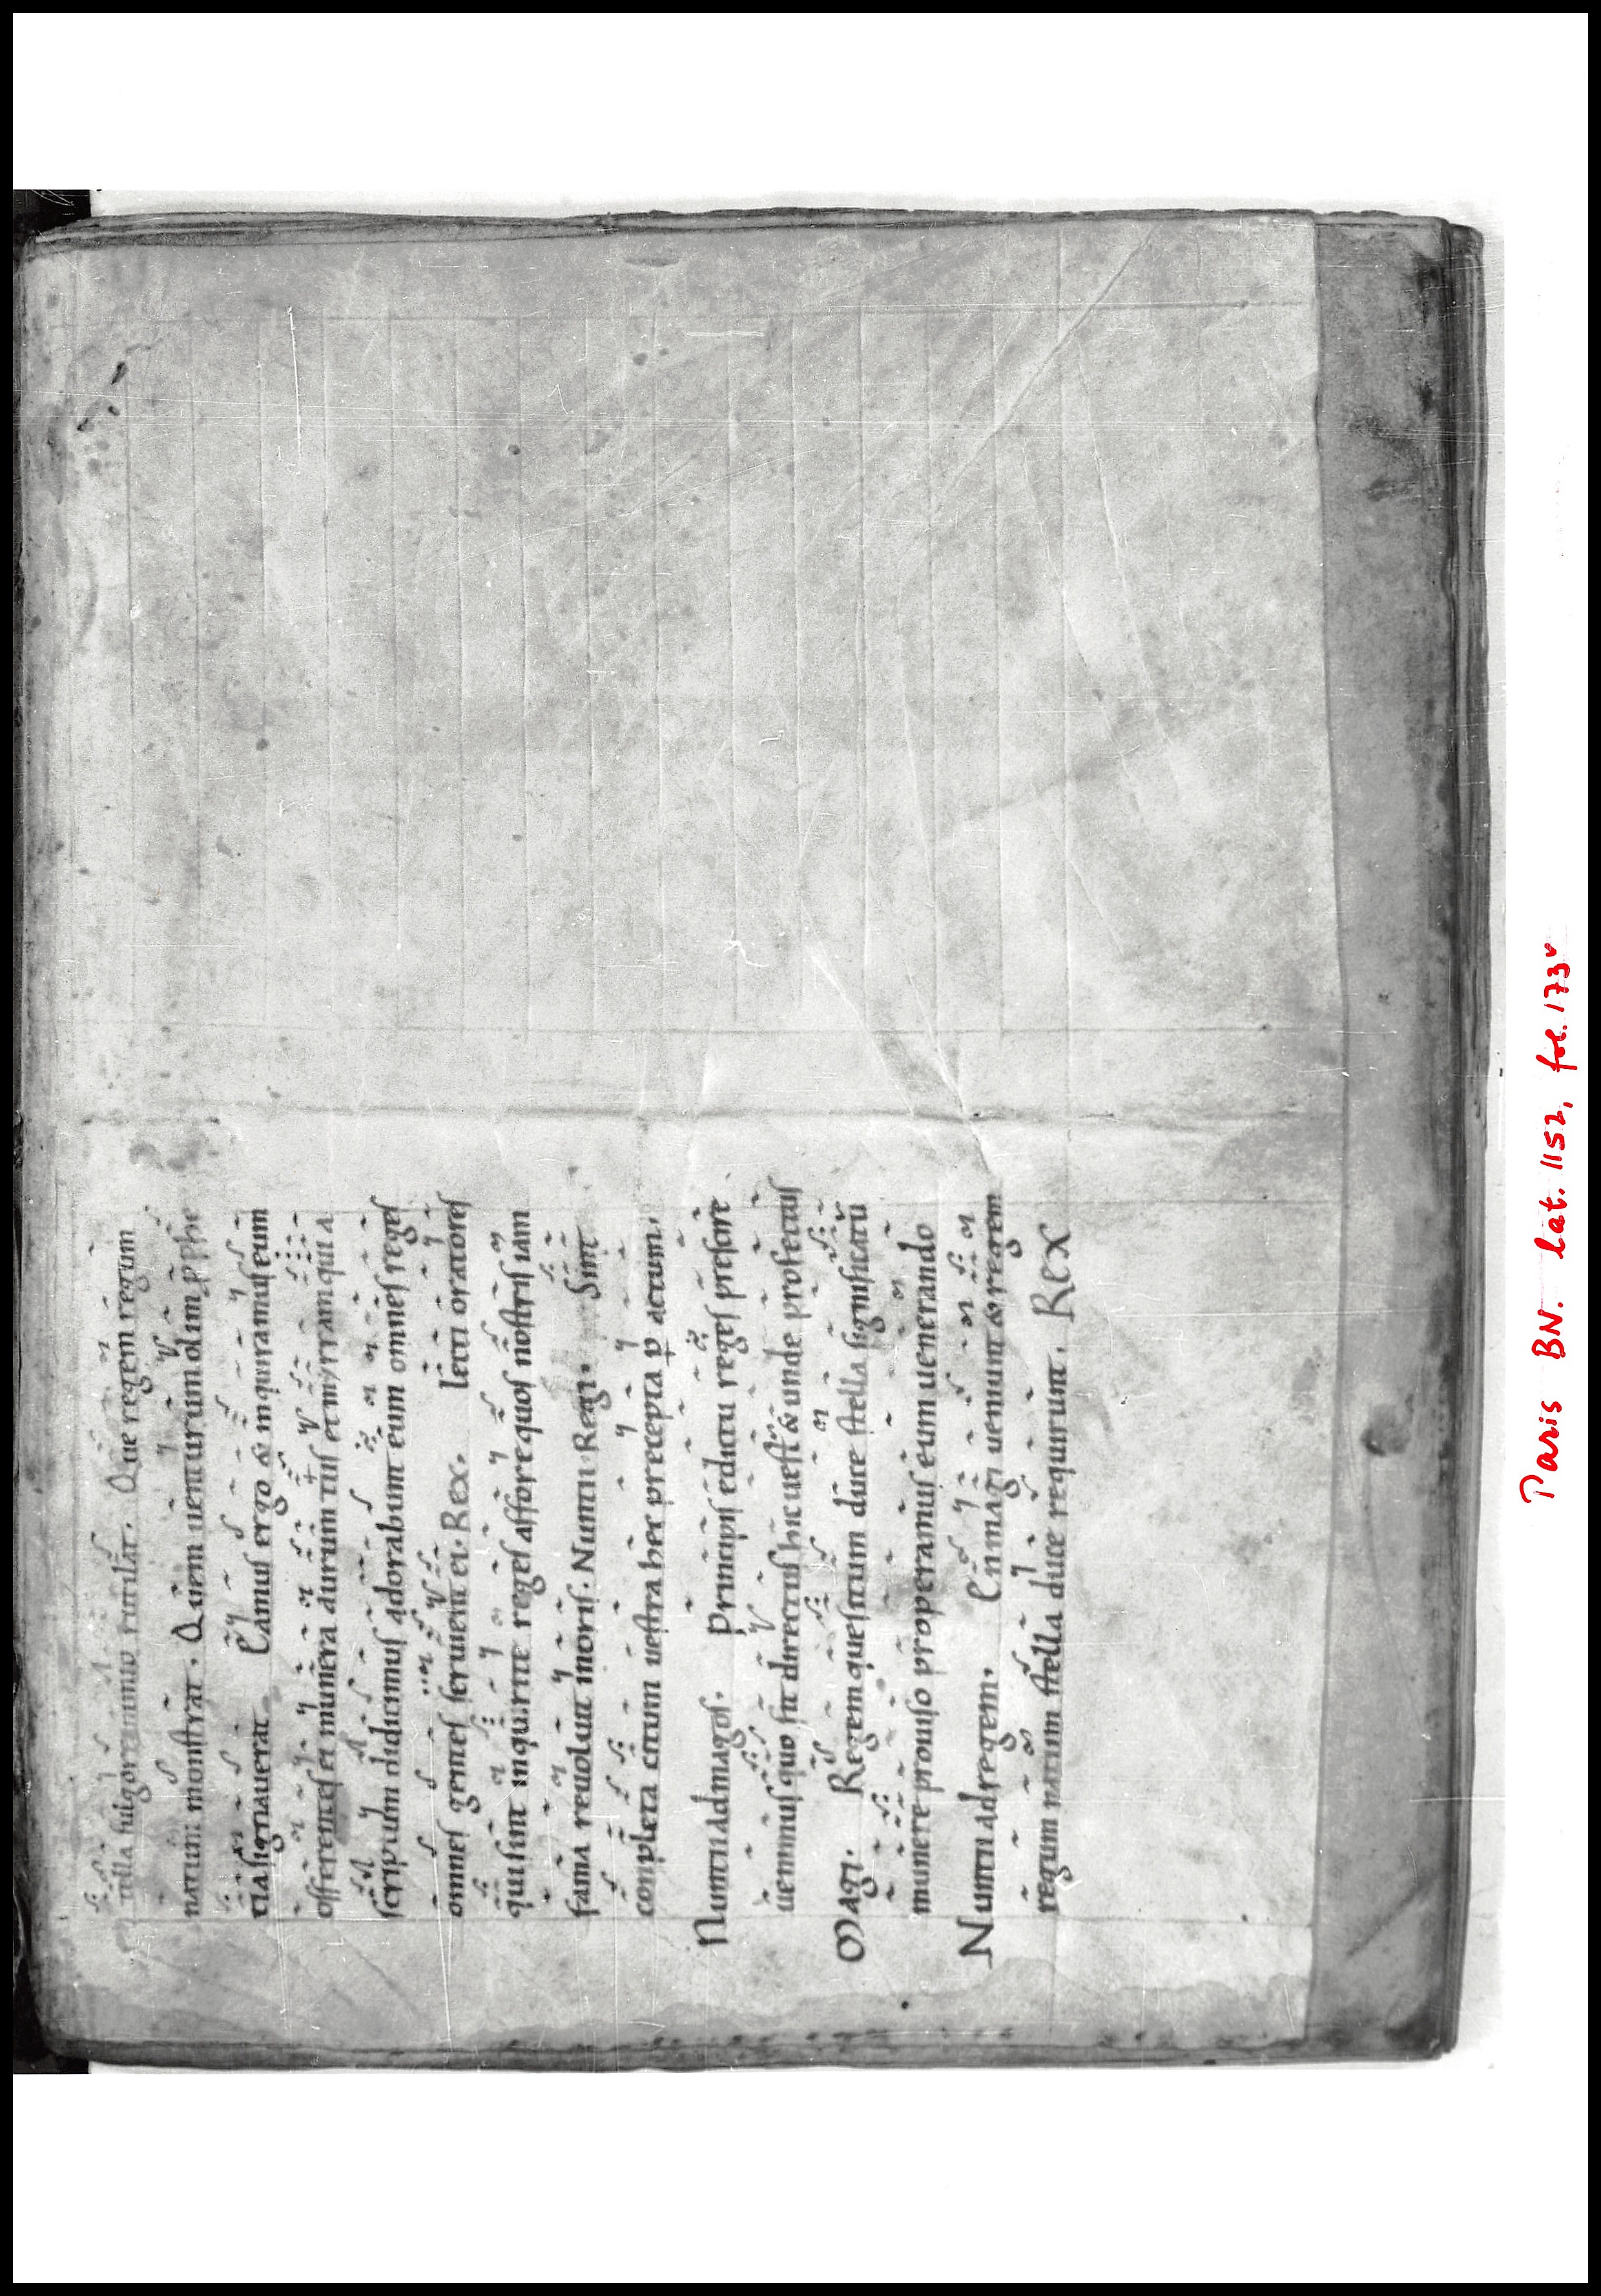 stella fulgore nimio rutilat. Que regem regum
natum monstrat. Quem uenturum olim pphe
tia signauerat Eamus ergo & inquiramus eum
offerentes ei munera aurum tus et myrram quia
scriptum didicimus adorabunt eum omnes reges
omnes gentes seruient ei. Rex. leti oratores
qui sint inquirite reges affore quos nostris iam
fama reuoluit inoris. Nuntii Regi. Sint
completa citum uestra hec precepta p actum.
Nuntii ad magos. Principis edictu reges presore
uenimus quo sit directus hic uestr & unde profectus
Magi. Regem quesitum duce stella significatu
munere prouiso properamus eum uenerando
Nuntii ad regem. En magi ueniunt & regem
regum natum stella duce requirunt. Rex
Paris BN. lat. 1152, fol. 173v